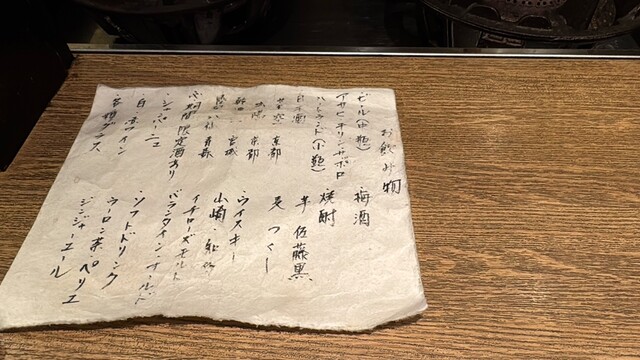 お飲み物
・ビール(中瓶)
アサヒ キリン サッポロ
ハートランド(小瓶)
・日本酒
京都
京都
宮城
八仙 青森
期間限定酒あり
・シャンパーニュ
・白 赤ワイン
・各種グラス
・梅酒
・焼酎
芋 佐藤黒
麦 つくし
・ウイスキー
山崎
イチローズモルト
バランタイン
・ソフトドリンク
ウーロン茶・ペリエ
ジンジャーエール